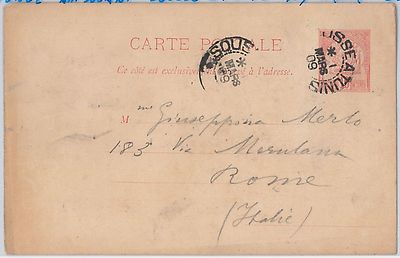 CARTE POSTALE
Ce côté est exclusivement réservé à l'adresse.
SOUS
MARS
09
USSE A TUNIS
MARS
09
M me Giuseppina Merlo
183 Via Merulana
Rome
(Italie)